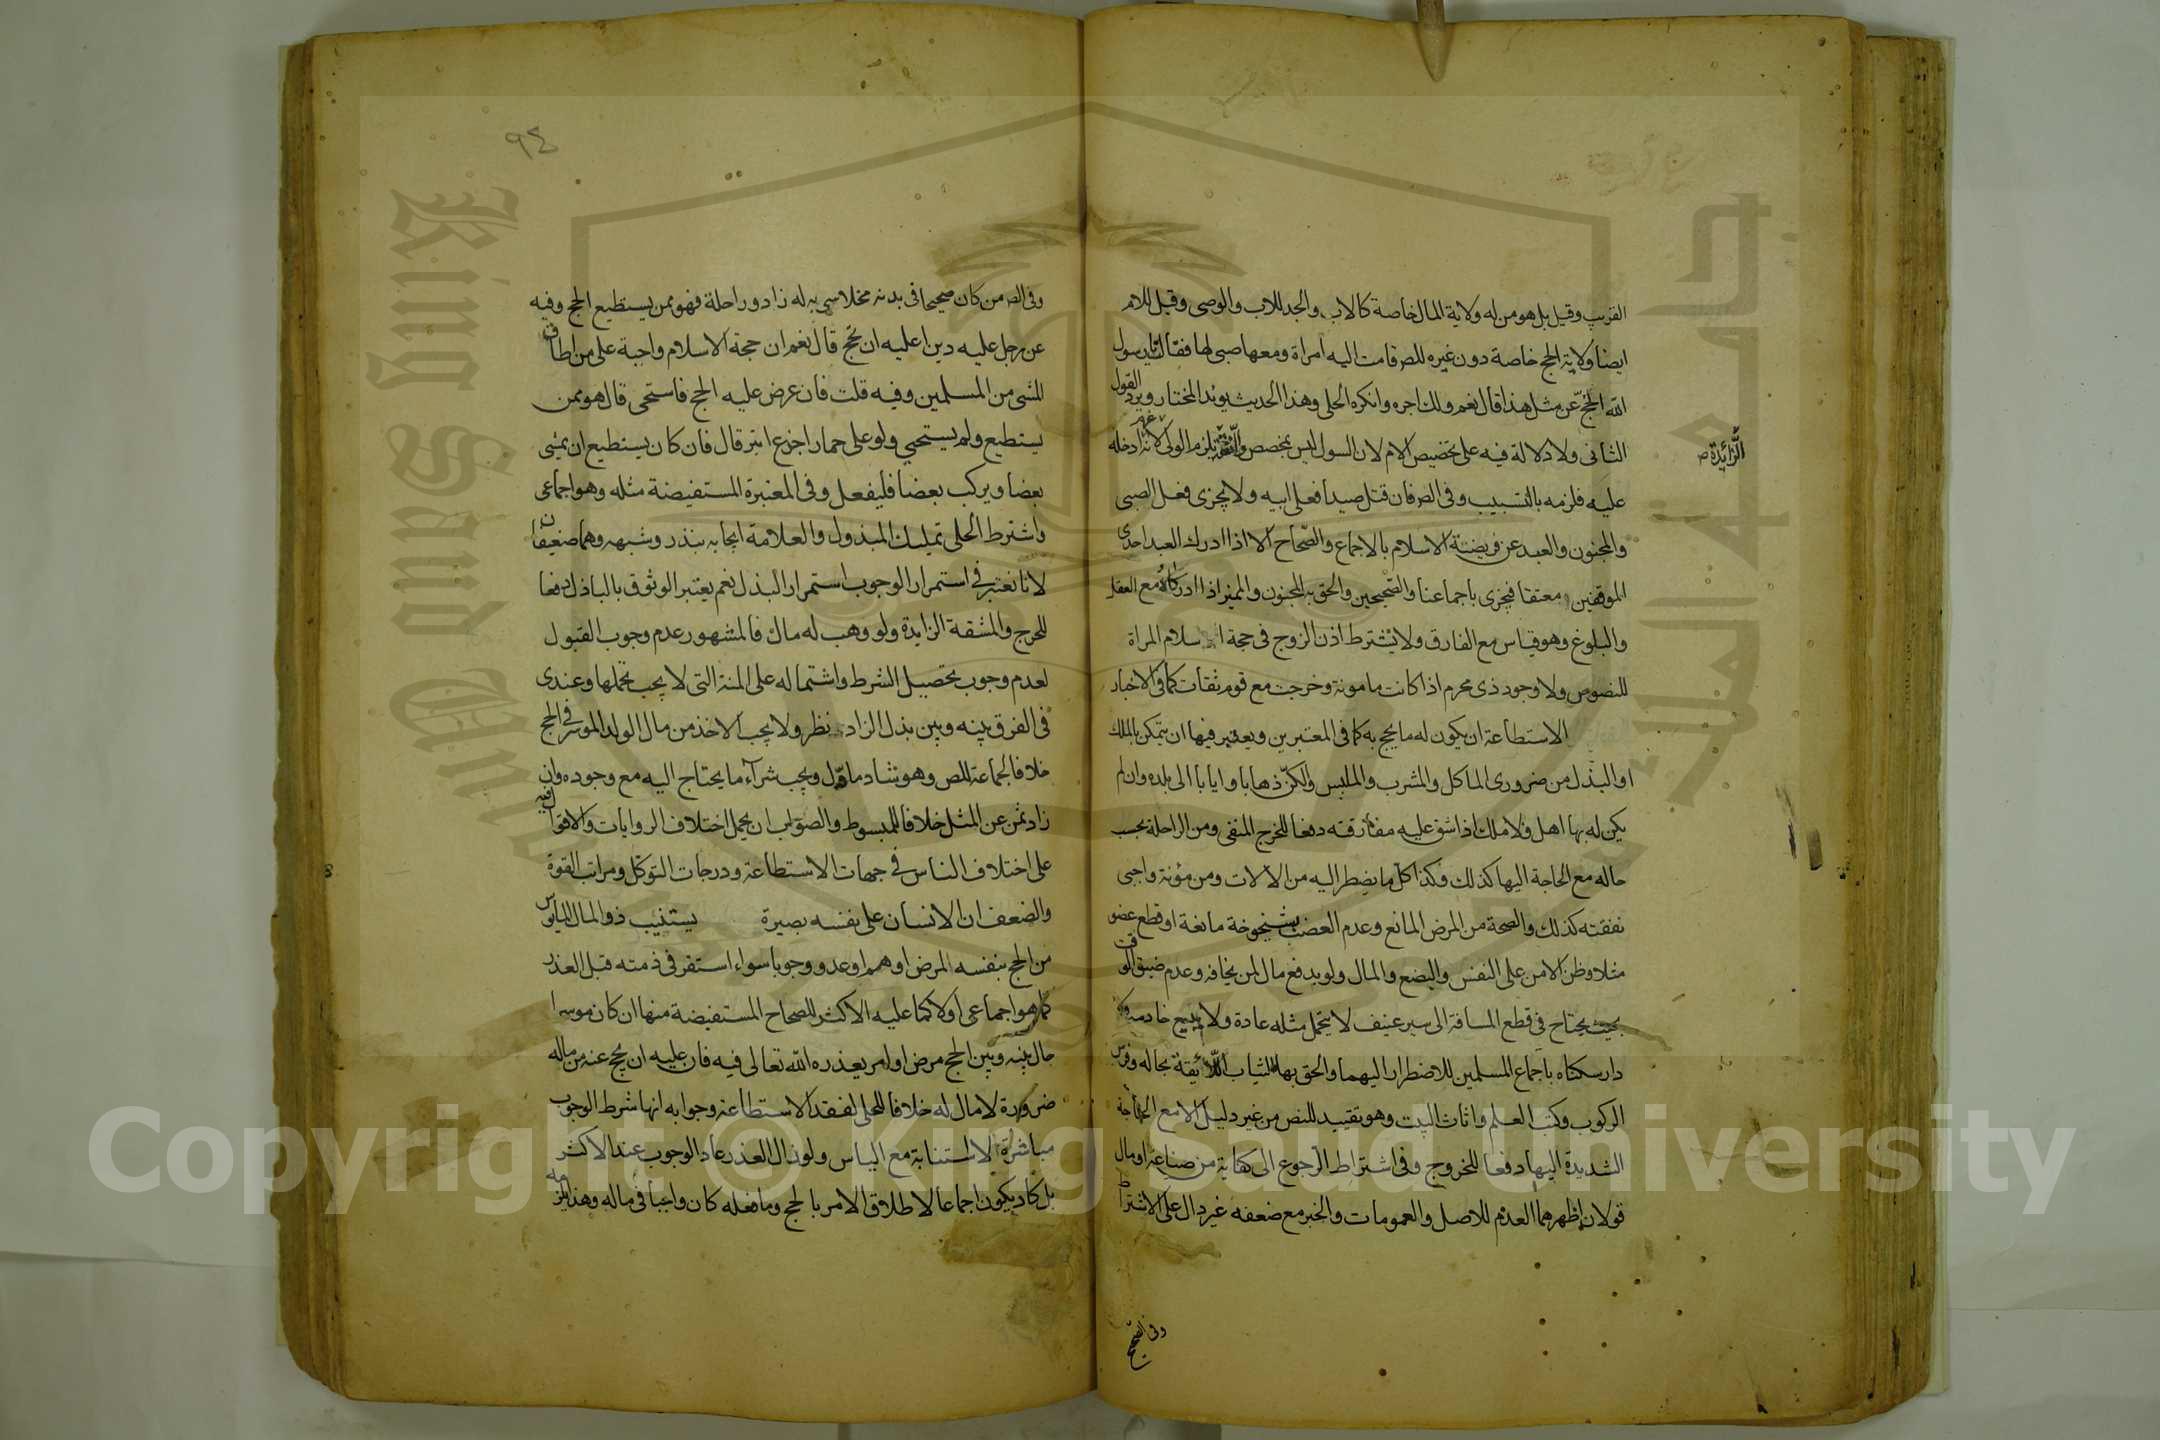 القريب وقيل بل هو من له ولاية المال خاصة كالاب والجد للاب والوصي وقيل للام
ايضا ولاية الحج خاصة دون غيره للص قامت اليه امراة ومعها صبي لها فقالت يا رسول
الله ايحج عن مثل هذا قال نعم ولك اجره وانكره الحلي وهذا الحديث يؤيد المختار ويرد القول
الثاني ولا دلالة فيه على تخصيص الام لان السول ليس بمخصص والنفقة تلزم الولي لانه ادخله
الزائدة ص
عليه فلزمه بالتسبيب وفي الص فان قتل صيدا فعلى ابيه ولا يجزي فعل الصبي
والمجنون والعبد عن فريضة الاسلام بالاجماع والصحاح الا اذا ادرك العبد احدى
الموقفين معتقا فيجزى باجماعنا والصحيحين والحق به المجنون والمميز اذا ادركاه مع العقل
والبلوغ وهو قياس مع الفارق ولا يشترط اذن الزوج في حجة اسلام المراة
للنصوص ولا وجود ذي محرم اذا كانت مامونة وخرجت مع قوم ثقات كما في الاخبار
الاستطاعة ان يكون له ما يحج به كما في المعتبرين ويعتبر فيها ان يتمكن بالملك
او البذل من ضروري الماكل والمشرب والملبس ذهابا وايابا الى بلده وان لم
يكن له بها اهل ولا ملك اذا شق عليه مفارقته دفعا للحرج المنفي ومن الراحلة بحسب
حاله مع الحاجة اليها كذلك وكذا كل ما يضطر اليه من الالات ومن مؤنة واجبي
نفقته كذلك والصحة من المرض المانع وعدم العضب بشيخوخة مانعة او قطع عضو
مثلا وظن الامن على النفس والبضع والمال ولو بدفع مال لمن يخافه وعدم ضيق الوقت
بحيث يحتاج في قطع المسافة الى سير عنيف لا يتحمل مثله عادة ولا يبيع خادمه ولا
دار سكناه باجماع المسلمين للاضطرار اليهما والحق بهما الثياب اللائقة بحاله وفرس
الركوب وكتب العلم واثاث البيت وهو تقييد للنص من غير دليل الا مع الحاجة
الشديدة اليها دفعا للحروج وفي اشتراط الرجوع الى كفاية من صناعة او مال
قولان اظهرهما العدم للاصل والعمومات والخبر مع ضعفه غير دال على الاشتراط
وفي الصحيح
٩٤
وفي الص من كان صحيحا في بدنه مخلا سربه له زاد وراحلة فهو ممن يستطيع الحج وفيه
عن رجل عليه دين اعليه ان يحج قال نعم ان حجة الاسلام واجبة على من اطاق
المشي من المسلمين وفيه قلت فان عرض عليه الحج فاستحيى قال هو ممن
يستطيع ولم يستحيي ولو على حمار اجدع ابتر قال فان كان يستطيع ان يمشي
بعضا ويركب بعضا فليفعل وفي المعتبرة المستفيضة مثله وهو اجماعي
واشترط الحلي تمليك المبذول والعلامة ايجابه بنذر وشبهه وهما ضعيفان
لانا نعتبر في استمرار الوجوب استمرار البذل نعم يعتبر الوثوق بالباذل دفعا
للحرج والمشقة الزايدة ولو وهب له مال فالمشهور عدم وجوب القبول
لعدم وجوب تحصيل الشرط واشتماله على المنة التي لا يجب تحملها وعندي
في الفرق بينه وبين بذل الزاد نظر ولا يجب الاخذ من مال الولد الموسر في الحج
خلافا لجماعة للص وهو شاد ماول ويجب شرآء ما يحتاج اليه مع وجوده وان
زاد ثمن عن المثل خلافا للمبسوط والصواب ان يحمل اختلاف الروايات والاقوال فيه
على اختلاف الناس في جهات الاستطاعة ودرجات التوكل ومراتب القوة
والضعف ان الانسان على نفسه بصيرة يستنيب ذو المال المايوس
من الحج بنفسه المرض او هم او عدو وجوبا سواء استقر في ذمته قبل العذر
كما هو اجماعي او لا كما عليه الاكثر للصحاح المستفيضة منها ان كان موسرا
حال بينه وبين الحج مرض او امر يعذره الله تعالى فيه فان عليه ان يحج عنه من ماله
ضرورة لا مال له خلافا للحلي لفقد الاستطاعة وجوابه انها شرط الوجوب
مباشرة لا الاستنابة مع الياس ولو زال العذر عاد الوجوب عند الاكثر
بل كاد يكون اجماعا لاطلاق الامر بالحج وما فعله كان واجبا في ماله وهذا يلزمه